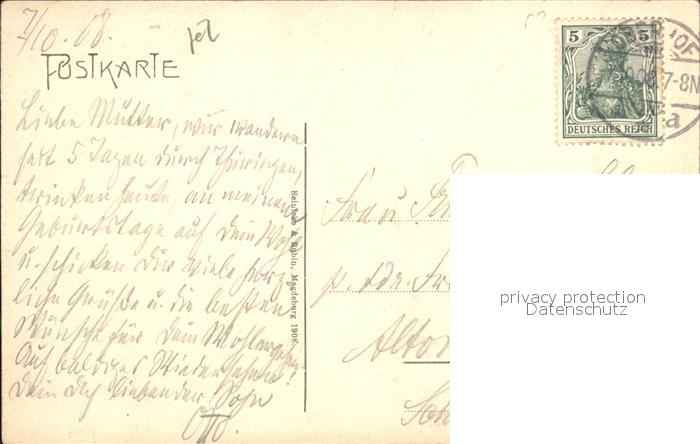 7/10. 08.
POSTKARTE
Liebe Mutter, wir wandern
seit 5 Tagen durch Thüringen,
trinken heute, an meinem
Geburtstage auf Dein Wohl
u. schicken Dir viele herz-
liche Grüße u. die besten
Wünsche für Dein Wohlergehen.
Auf baldiges Wiedersehen!
Dein Dich liebender Sohn
Otto.
Reinicke & Rubin, Magdeburg 1908.
5 5
DEUTSCHES REICH
7-8N
a
Frau
p. Adr. Fr
Alto
privacy protection
Datenschutz